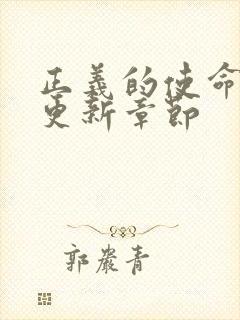 正義的使命
更新章節
郭嚴青